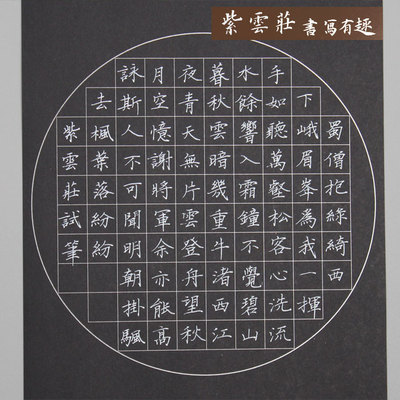 紫雲莊 書寫有趣
蜀僧抱綠綺西
下峨眉峯為我一揮
手如聽萬壑松客心洗流
水餘響入霜鐘不覺碧山
暮秋雲暗幾重牛渚西江
夜青天無片雲登舟望秋
月空憶謝將軍余亦能高
詠斯人不可聞明朝掛颿
去楓葉落紛紛
紫雲莊試筆